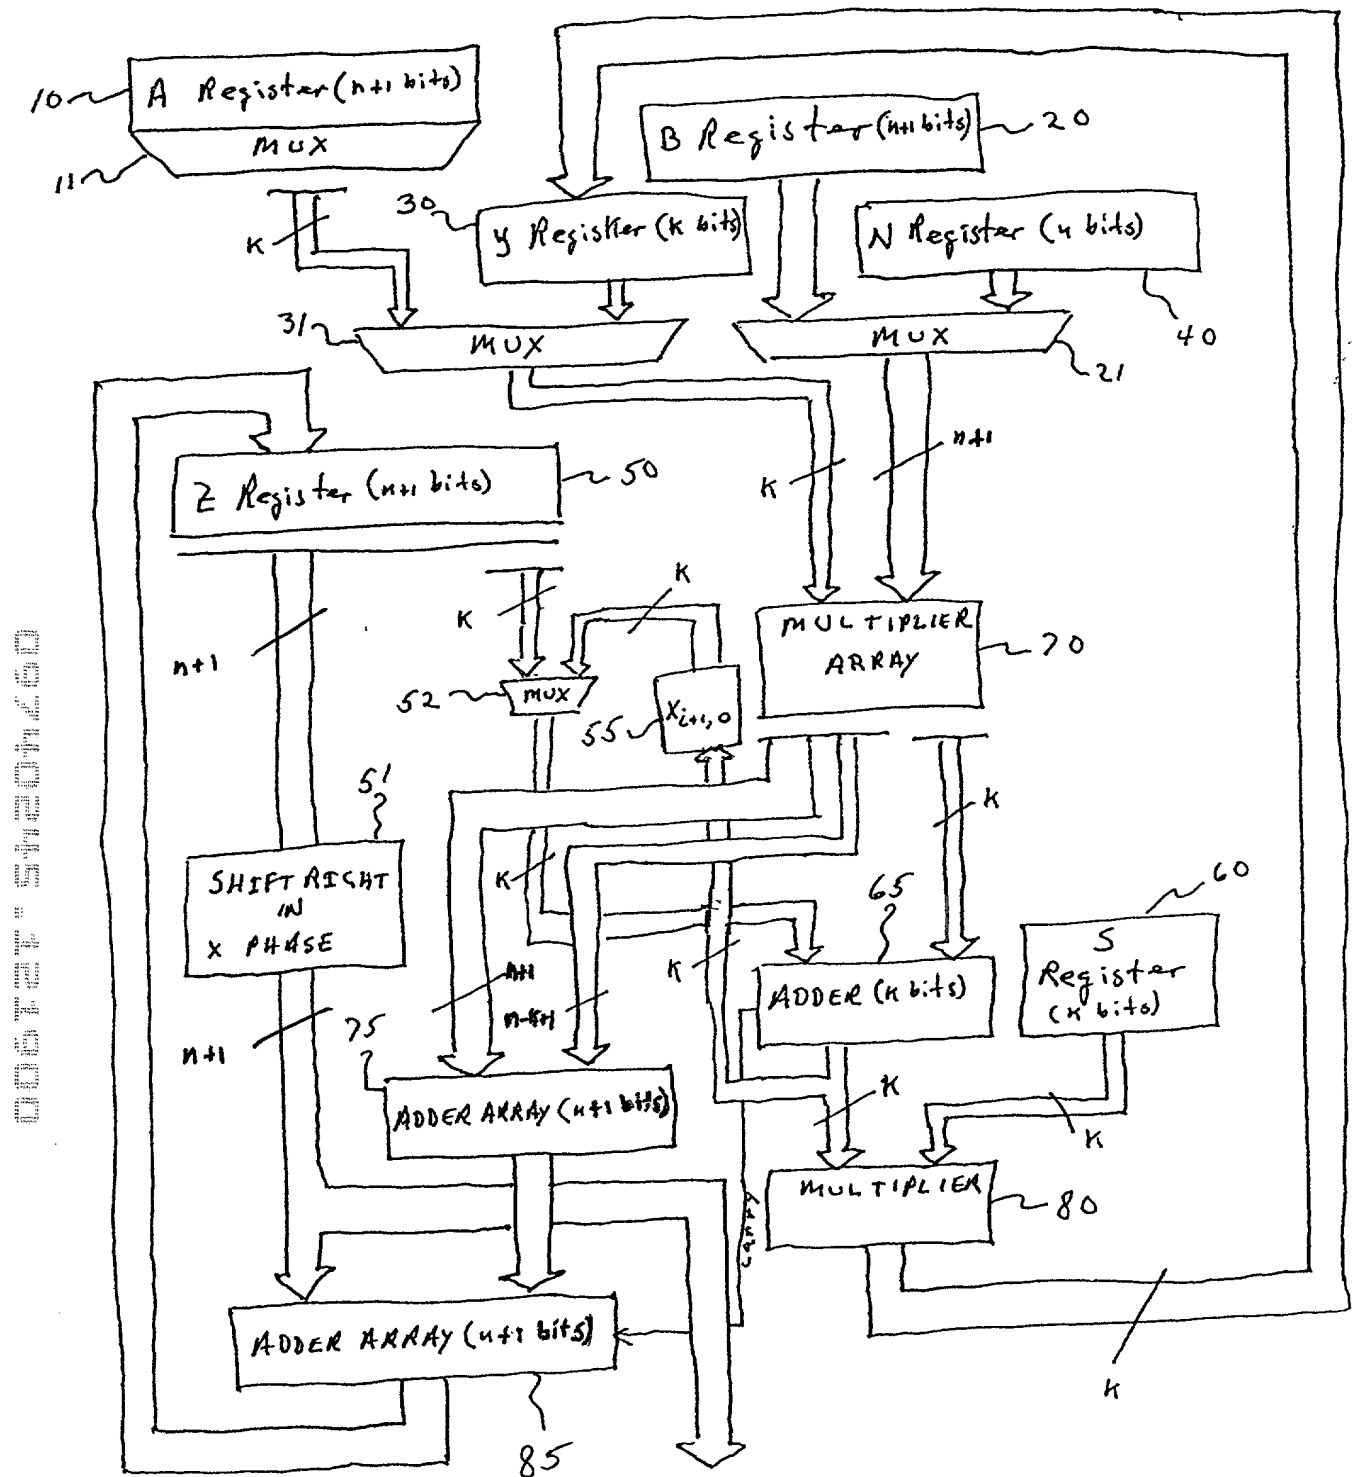 10
A Register (n+1 bits)
MUX
11
B Register (n+1 bits)
20
30
Y Register (k bits)
N Register (n bits)
40
K
31
MUX
MUX
21
n+1
K
Z Register (n+1 bits)
50
K
K
n+1
MULTIPLIER
ARRAY
70
52
MUX
55
Xi+1,0
51
K
SHIFT RIGHT
IN
X PHASE
K
65
60
S
Register
(k bits)
K
ADDER (k bits)
n+1
n-k+1
n+1
75
ADDER ARRAY (n+1 bits)
K
K
MULTIPLIER
80
CARRY
ADDER ARRAY (n+1 bits)
K
85